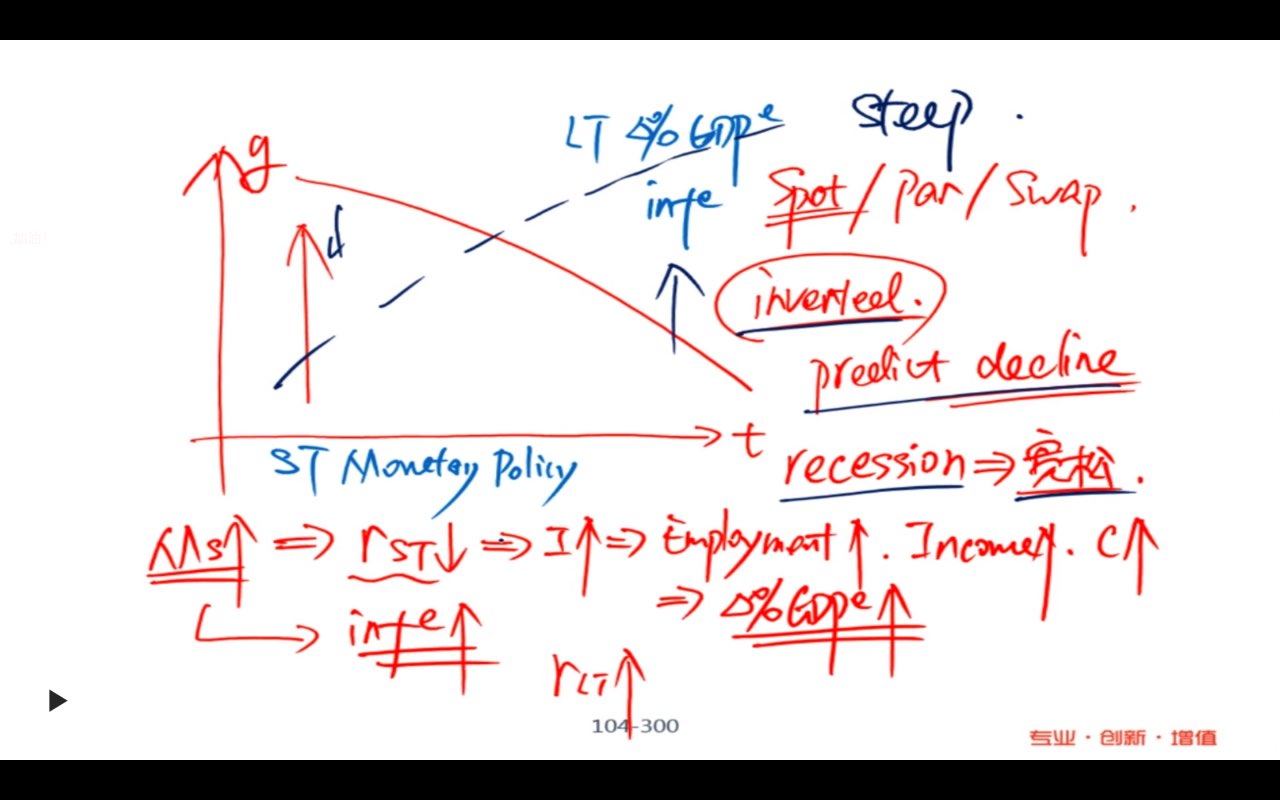 LT Δ%GDPᵉ steep.
g
infᵉ Spot / Par / Swap.
inverted.
predict decline
t
ST Monetary Policy
recession ⇒ 宽松.
Ms↑ ⇒ rST↓ ⇒ I↑ ⇒ Employment↑. Income↑. C↑
⇒ Δ%GDPᵉ↑
infᵉ↑
rLT↑
104-300
专业·创新·增值